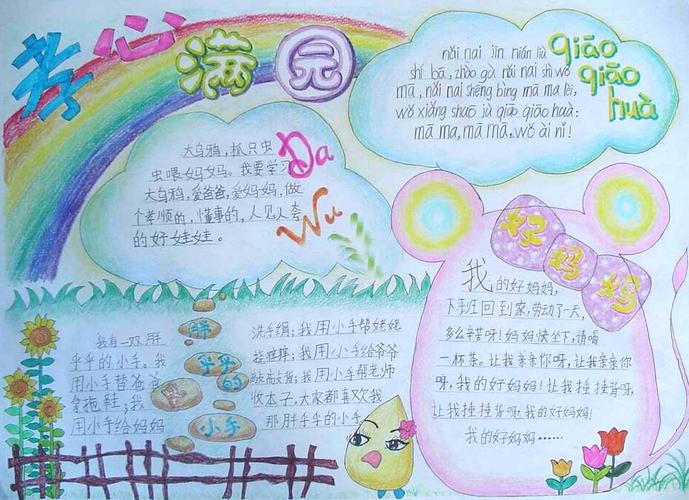 孝心满园
大乌鸦,抓只虫
虫喂妈妈。我要学习
大乌鸦,爱爸爸,爱妈妈,做
个孝顺的,懂事的,人见人夸
的好娃娃。
Da
Wu
qiāo
qiāo
huà
nǎi nai jīn nián liù
shí bā, zhào gù nǎi nai shì wǒ
mā, nǎi nai shēng bìng mā ma lèi,
wǒ xiǎng shuō jù qiāo qiāo huà:
mā ma, mā mā, wǒ ài nǐ!
好妈妈
我的好妈妈,
下班回到家,劳动了一天,
多么辛苦呀!妈妈快坐下,请喝
一杯茶。让我亲亲你呀,让我亲亲你
呀,我的好妈妈!让我捶捶背呀,
让我捶捶背呀!我的好妈妈!
我的好妈妈……
胖乎乎的
小手
我有一双胖
乎乎的小手。我
用小手替爸爸
拿拖鞋;我
用小手给妈妈
洗手绢;我用小手帮姥姥
挠痒痒;我用小手给爷爷
我用小手帮老师
收本子,大家都喜欢我
那胖乎乎的小手。